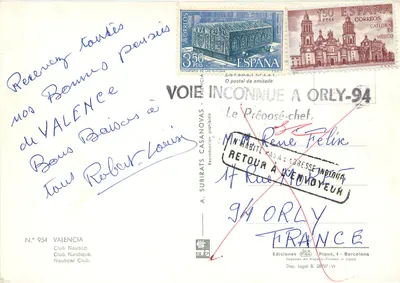 Recevez toutes
nos Bonnes pensées
de VALENCE
Bons Baisers à
tous Robert Louis
Nº 954 VALENCIA
Club Náutico.
Club Nautique.
Nautical Club.
A. SUBIRATS CASANOVAS
3,50 PTA
ESPAÑA
1,50 PTAS
ESPAÑA
CORREOS
CATEDRAL
MEXICO
O postal da amizade
VOIE INCONNUE A ORLY-94
Le Préposé-chef,
M. M. René Félix
N'HABITE PAS A L'ADRESSE INDIQUÉE
RETOUR A L'ENVOYEUR
17 Rue
94 ORLY
FRANCE
Ediciones
Piqué, 4 - Barcelona